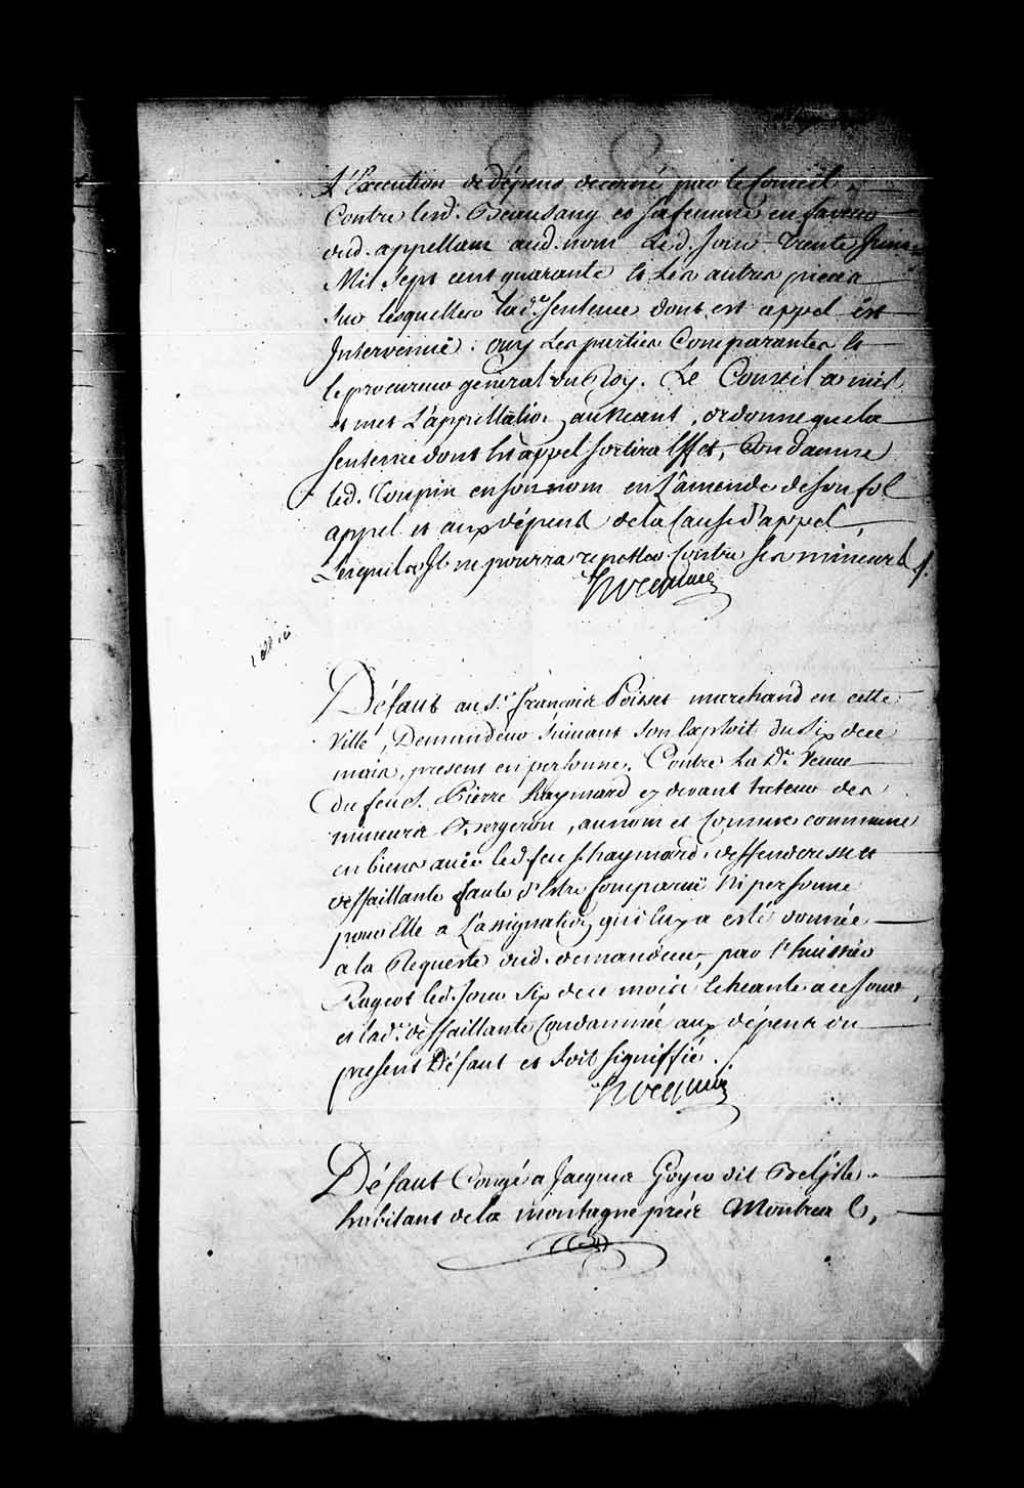 L'Execution de dépens decerné par le Conseil
Contre lesd. Beausang et sa femme en faveur
dud. appellant aud. nom led. Jour trente Juin
Mil sept cent quarante et les autres pieces
sur lesquelles lad.e sentence dont est appel est
Intervenüe: ouy les parties Comparantes et
le procureur general du Roy. Le Conseil a mis
et met L'appellation au Neant, ordonne que la
sentence dont est appel sortira Effet, Condamne
led. Toupin en son nom en L'amende de son fol
appel et aux dépens de la Cause d'appel,
Lesquels Il ne pourra repetter Contre ses mineurs ʃ.
Hocquart
Défaut au S.r françois Poisset marchand en cette
Ville, Demandeur suivant son Exploit du Six de ce
mois, present en personne. Contre La D.e Veuve
du feu S. Pierre haymard cy devant tuteur des
mineurs Bergeron, au nom et Comme commune
en biens avec led. feu S. haymard, deffenderesse et
deffaillante faute d'Estre Comparuë Ni personne
pour Elle a L'assignation qui luy a esté donnée
a la Requeste dud. demandeur, par l'huissier
Rageot led. Jour Six de ce mois Echeante a ce Jour,
et lad.e deffaillante Condamnée aux dépens du
present Défaut et soit signiffié.
Hocquart
Défaut Congé a Jacques Goyer dit Belisle
habitant de la montagne prés Montreal,